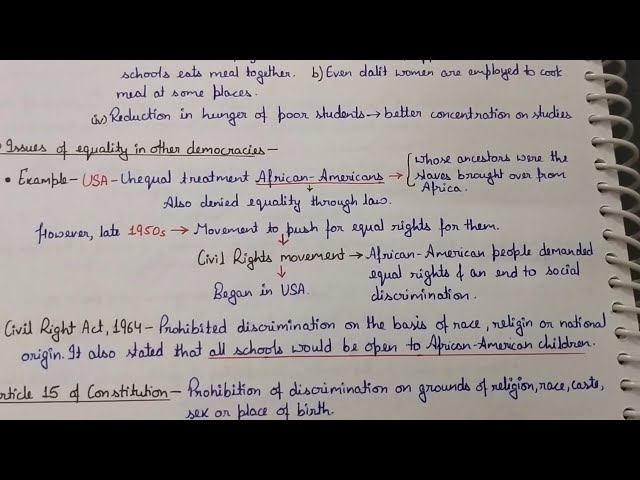 schools eats meal together. b) Even dalit women are employed to cook
meal at some places.
(iv) Reduction in hunger of poor students → better concentration on studies
Issues of equality in other democracies-
• Example- USA - Unequal treatment African-Americans → whose ancestors were the
slaves brought over from
Africa.
Also denied equality through law.
However, late 1950s → Movement to push for equal rights for them.
Civil Rights movement → African-American people demanded
equal rights & an end to social
discrimination.
Began in USA.
Civil Right Act, 1964 - Prohibited discrimination on the basis of race, religin or national
origin. It also stated that all schools would be open to African-American children.
rticle 15 of Constitution- Prohibition of discrimination on grounds of religion, race, caste,
sex or place of birth.